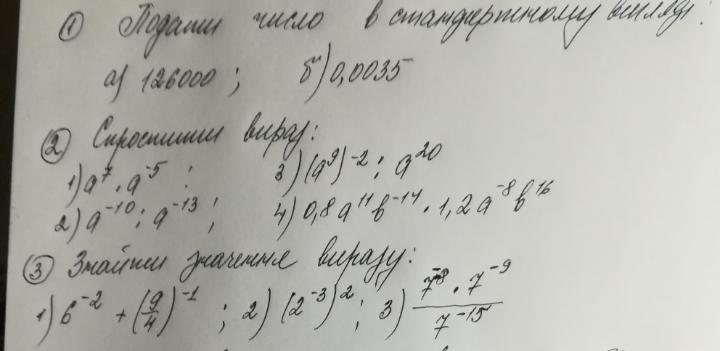 ① Подати число в стандартному вигляді:
а) 126000 ; б) 0,0035
② Спростити вираз:
1) a⁷ · a⁻⁵ ; 3) (a⁹)⁻² : a²⁰
2) a⁻¹⁰ : a⁻¹³ ; 4) 0,8a¹¹b⁻¹⁴ · 1,2a⁻⁸b¹⁶
③ Знайти значення виразу:
1) 6⁻² + (9/4)⁻¹ ; 2) (2⁻³)² ; 3) 7⁻⁸ · 7⁻⁹ / 7⁻¹⁵